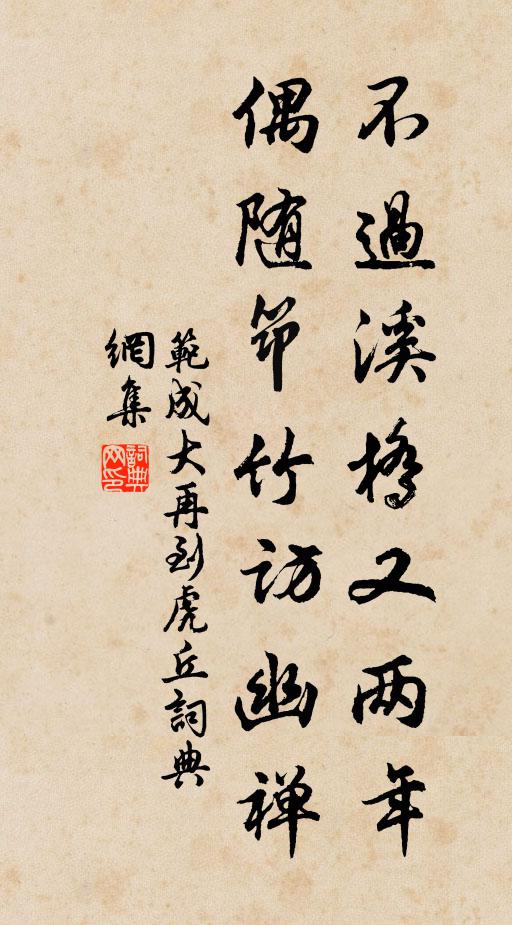 不過溪橋又两年
偶随笻竹访幽禅
範成大再到虎丘詞典
網集
詞典
网印